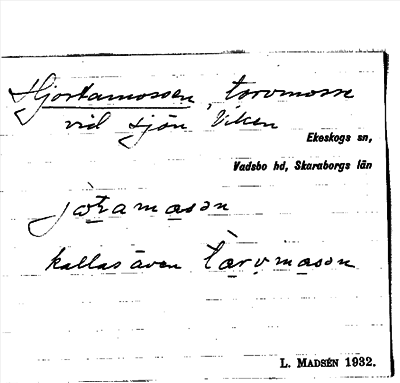 Hjortamossen, torvmosse
vid sjön Viken
Ekeskogs sn,
Vadsbo hd, Skaraborgs län
jòtamasən
kallas även tàrvmasən
L. MADSÉN 1932.